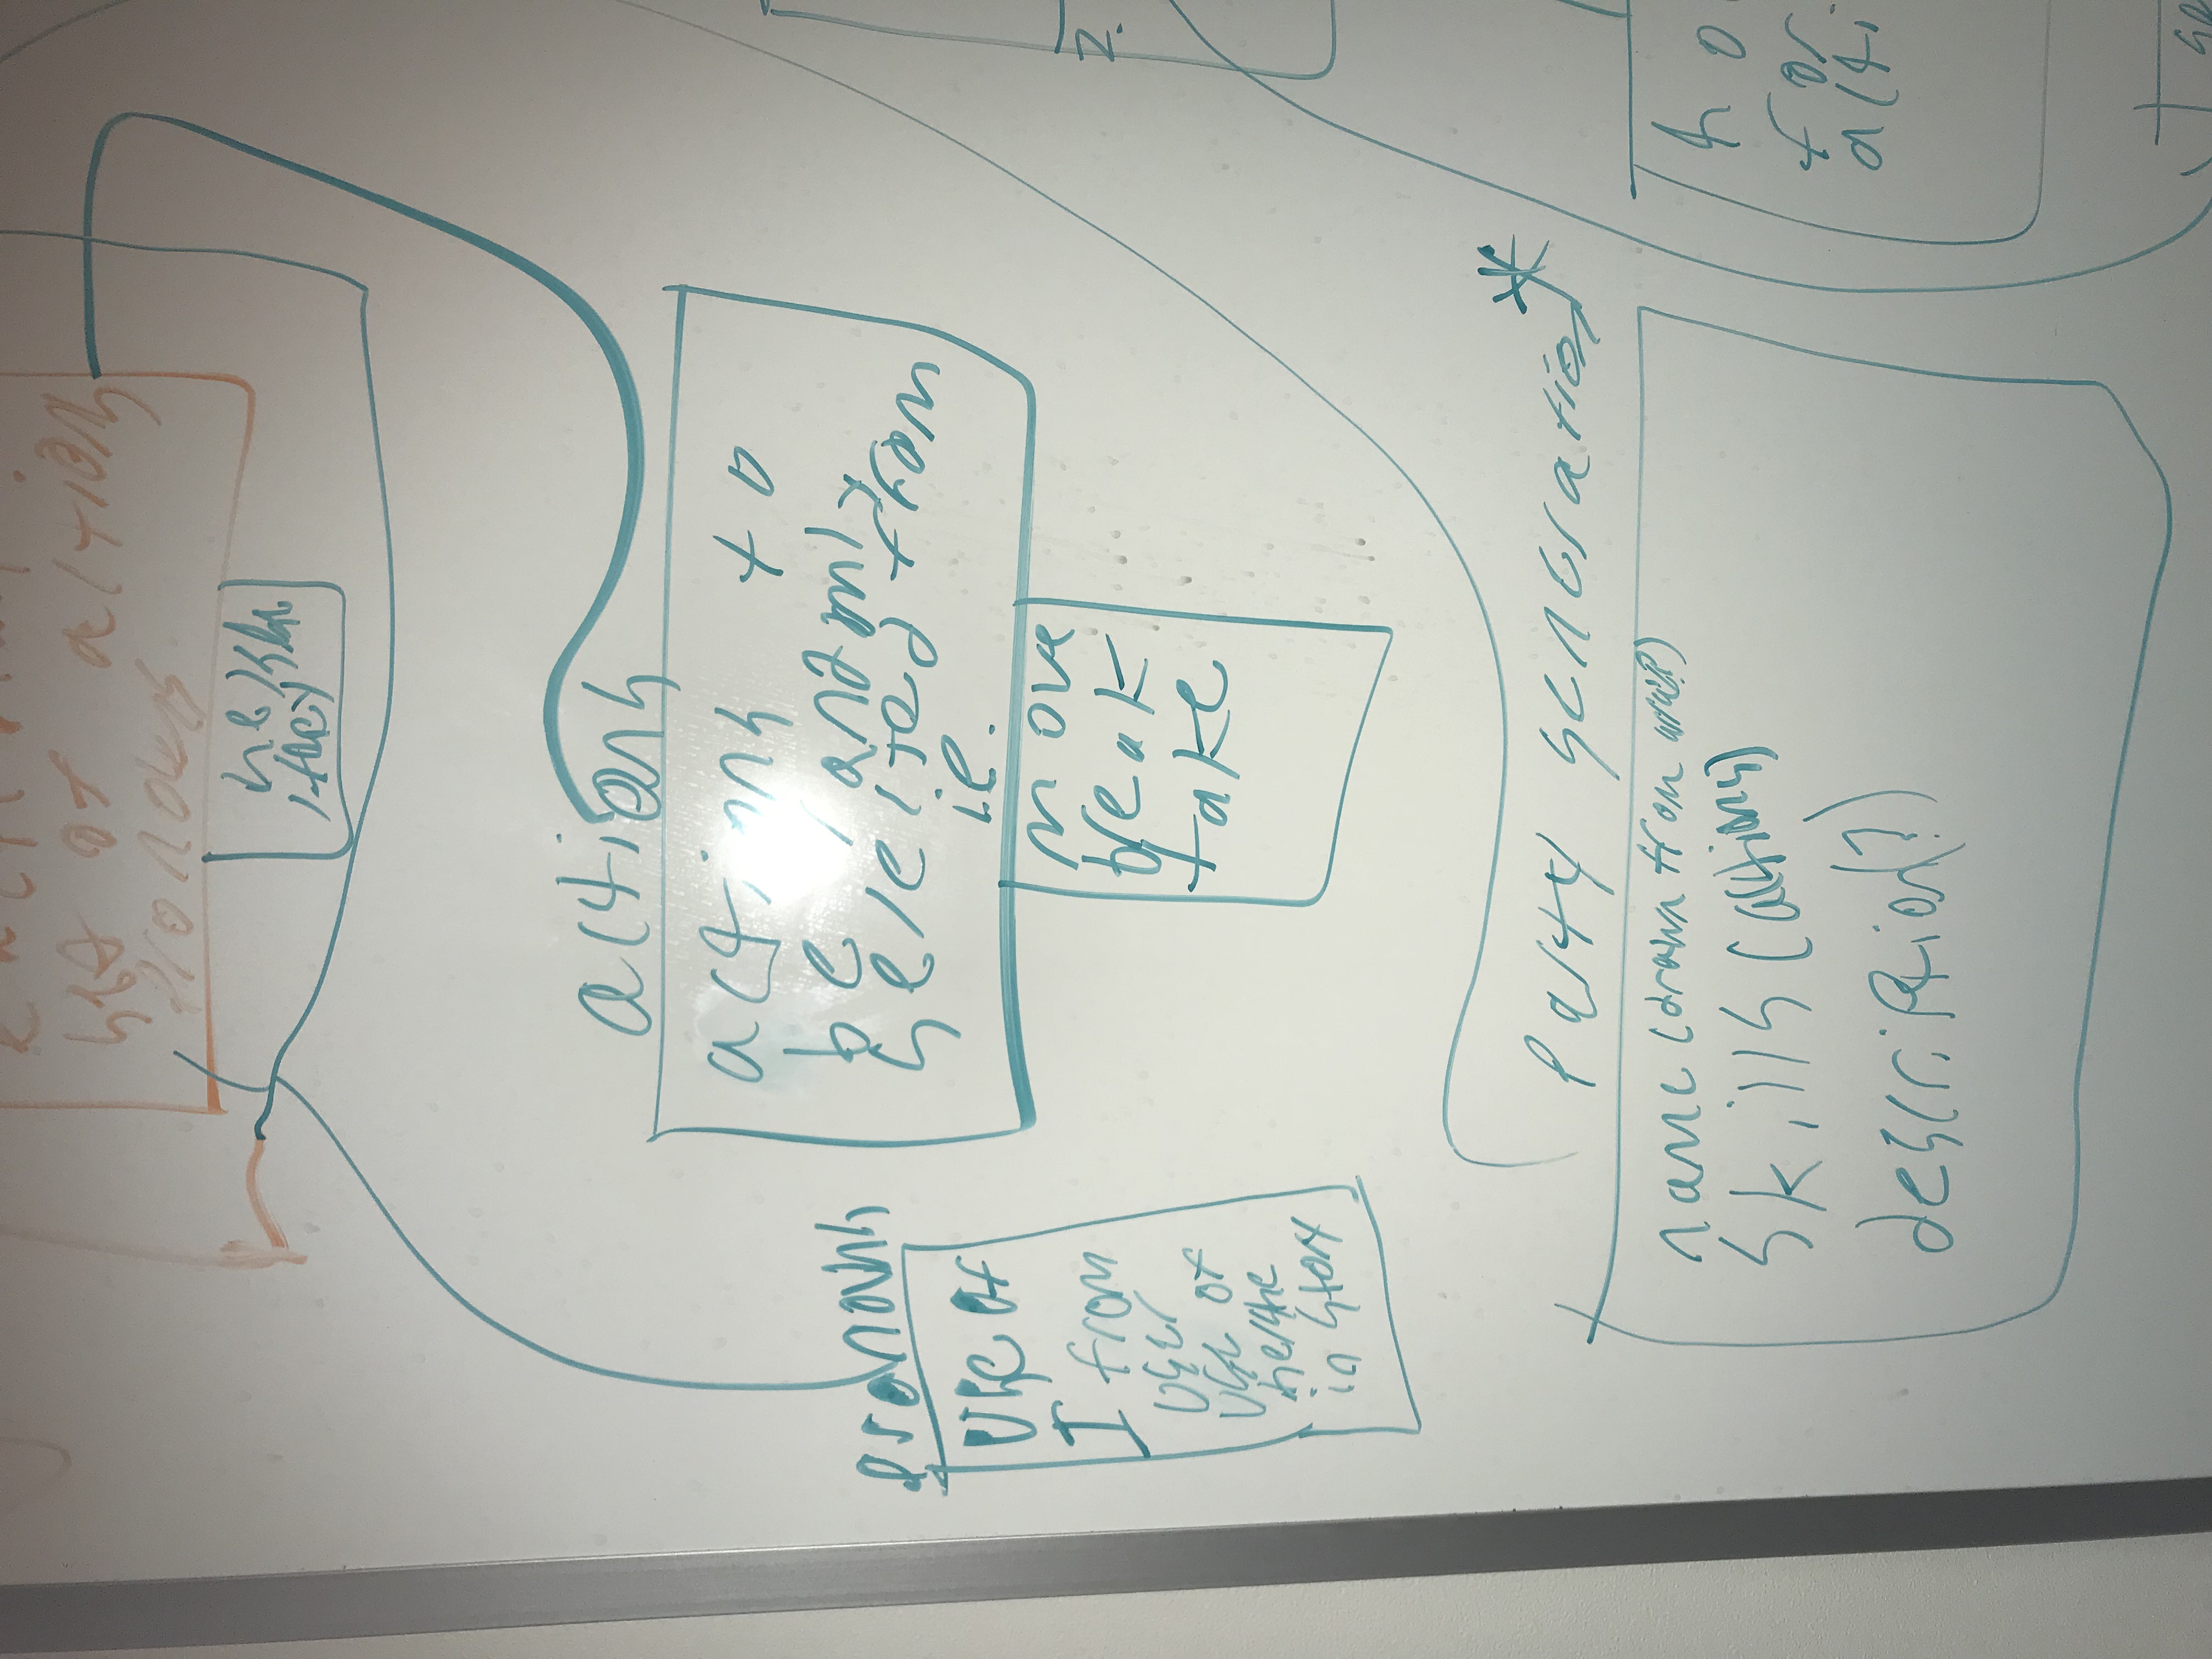 set of actions
pronouns
he/she
/they
actions
actions to
be randomly
selected from
i.e.
move
break
take
pronouns
use of
I from
user
use of
he/she
in story
party generation*
name (drawn from
skills (actions)
description(?)
2.
for
acti